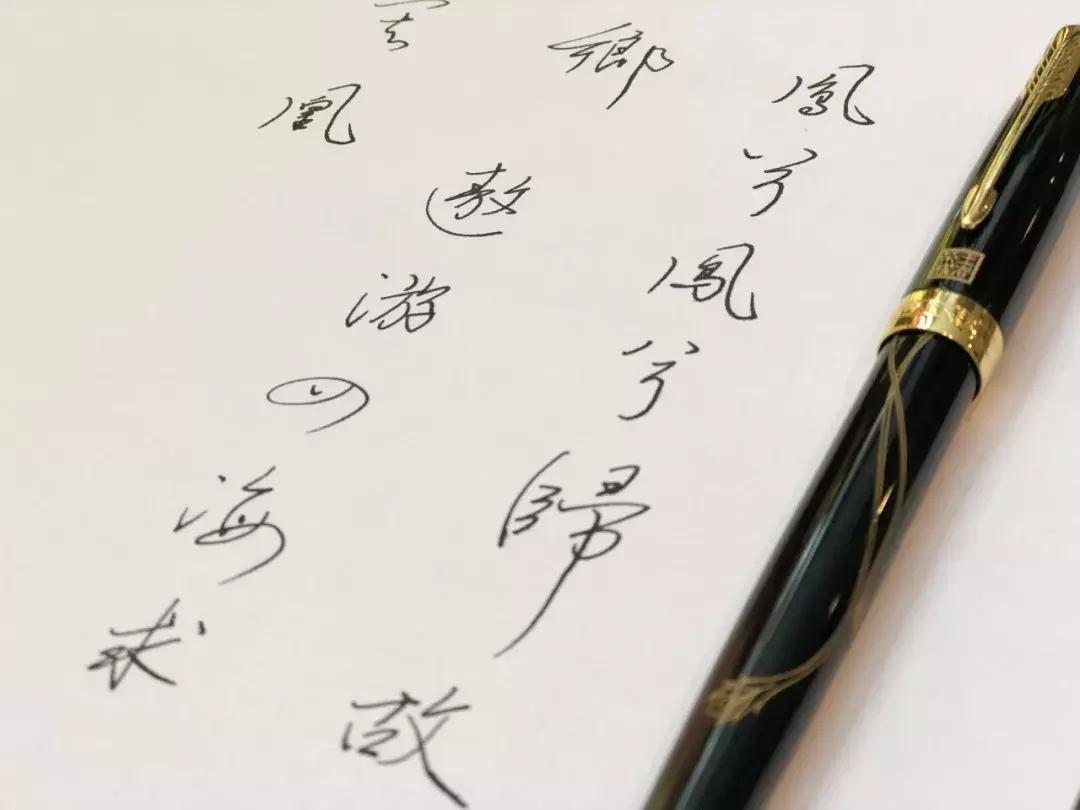 鳳兮鳳兮歸故
鄉遨游四海求
凰